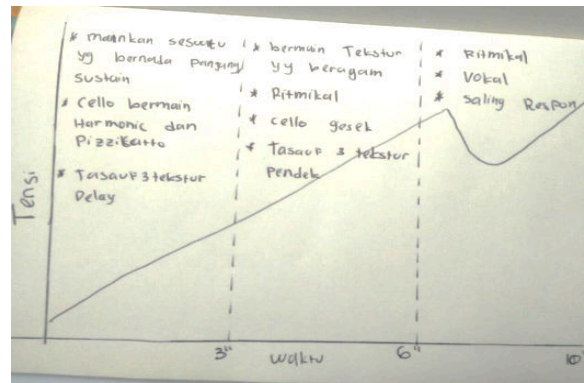 * mainkan sesuatu
yg bernada panjang/
sustain
* Cello bermain
Harmonic dan
Pizzikatto
* Tasauf 3 tekstur
Delay
* bermain Tekstur
yy beragam
* Ritmikal
* cello gesek
* Tasauf 3 tekstur
Pendek
* Ritmikal
* Vokal
* Saling Respon
Tensi
3"
waktu
6"
10"